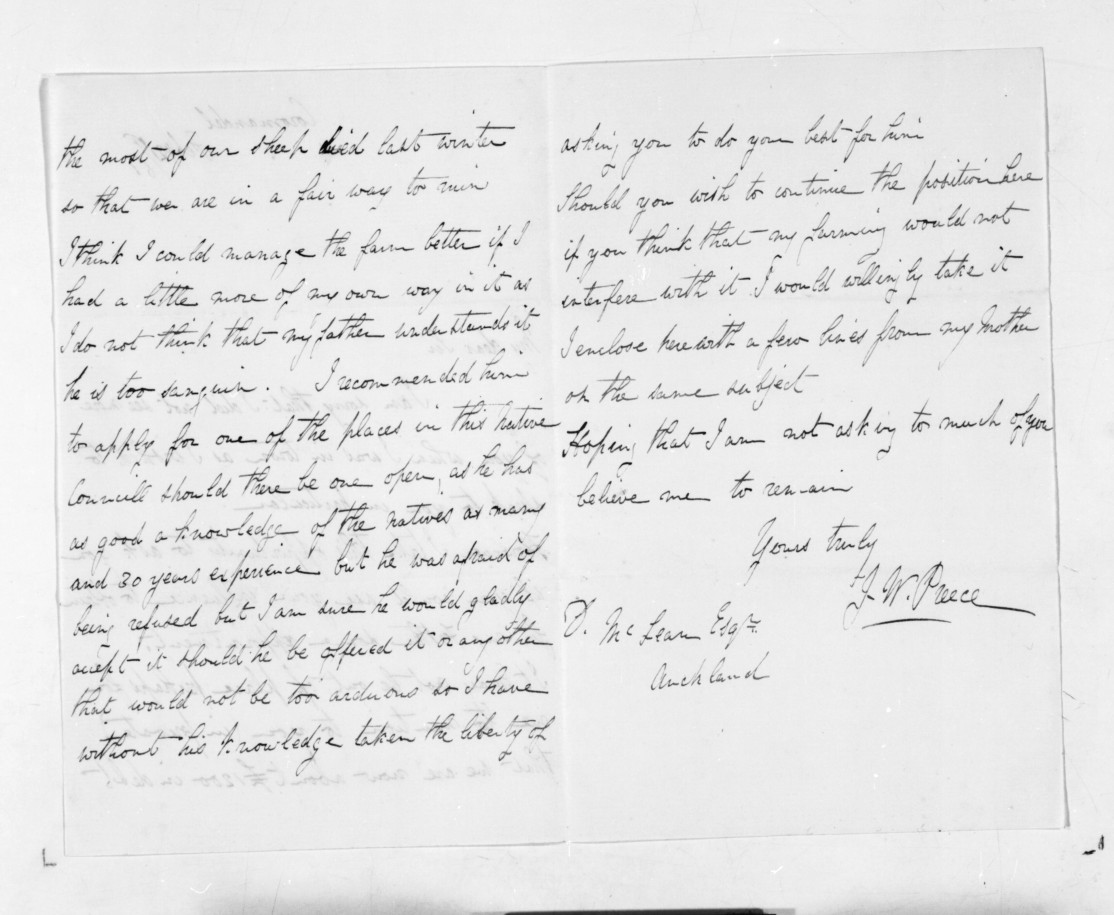 the most of our sheep died last winter
so that we are in a fair way to ruin
I think I could manage the farm better if I
had a little more of my own way in it as
I do not think that my father understands it
he is too sanguin. I recommended him
to apply for one of the places in this Native
Councill should there be one open, as he has
as good a knowledge of the natives as many
and 30 years experience but he was afraid of
being refused but I am sure he would gladly
accept it should he be offered it or any other
that would not be too arduous so I have
without his knowledge taken the liberty of
asking you to do your best for him
Should you wish to continue the position here
if you think that my farming would not
interfere with it I would willingly take it
I enclose herewith a few lines from my Mother
on the same subject
Hoping that I am not asking to much of you
believe me to remain
Yours truly
J W. Preece
D. McLean Esqr.
Auckland